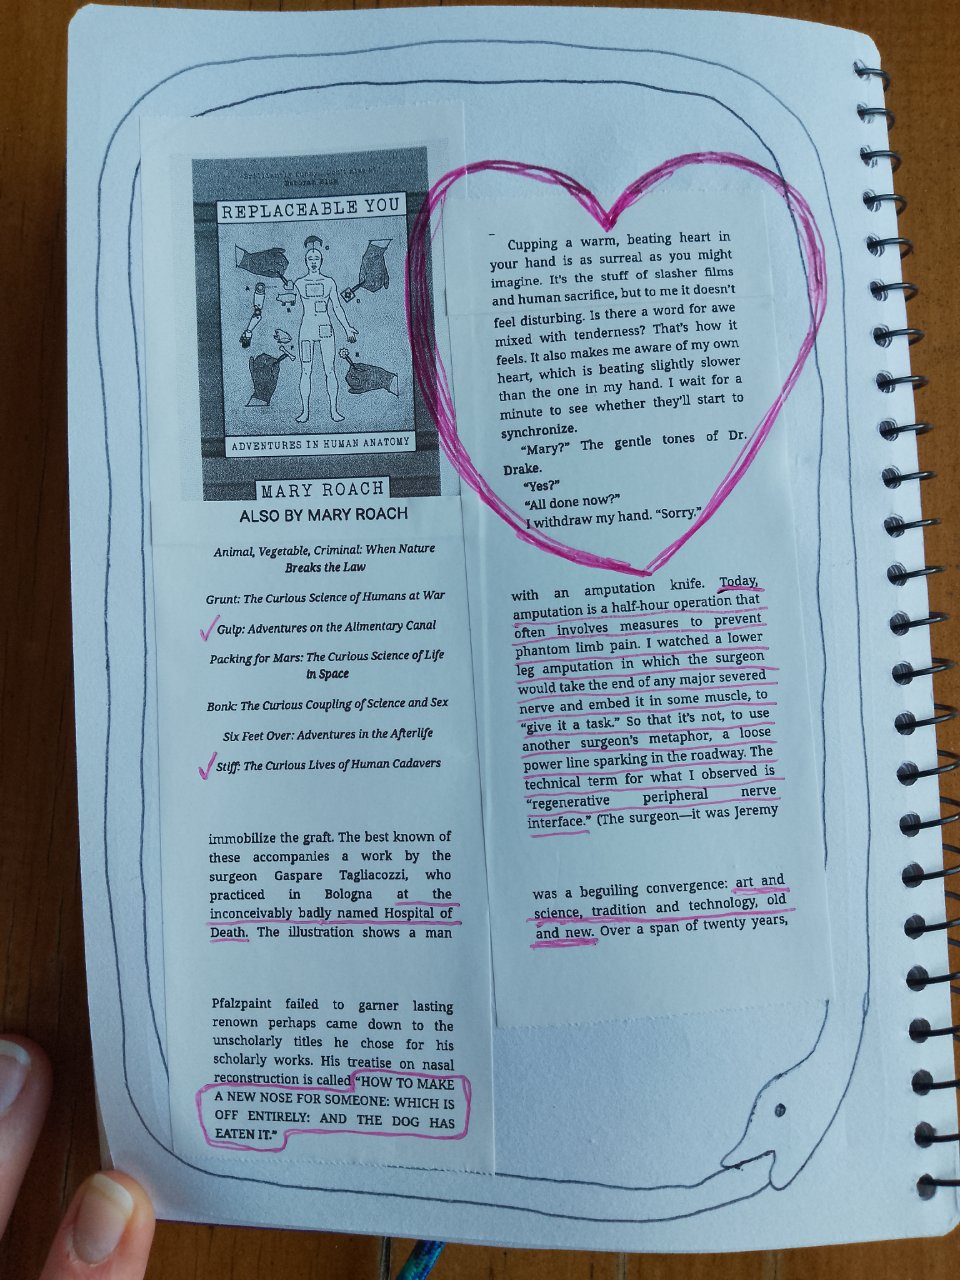 REPLACEABLE YOU
ADVENTURES IN HUMAN ANATOMY
MARY ROACH
ALSO BY MARY ROACH
Animal, Vegetable, Criminal: When Nature
Breaks the Law
Grunt: The Curious Science of Humans at War
Gulp: Adventures on the Alimentary Canal
Packing for Mars: The Curious Science of Life
in Space
Bonk: The Curious Coupling of Science and Sex
Six Feet Over: Adventures in the Afterlife
Stiff: The Curious Lives of Human Cadavers
immobilize the graft. The best known of
these accompanies a work by the
surgeon Gaspare Tagliacozzi, who
practiced in Bologna at the
inconceivably badly named Hospital of
Death. The illustration shows a man
Pfalzpaint failed to garner lasting
renown perhaps came down to the
unscholarly titles he chose for his
scholarly works. His treatise on nasal
reconstruction is called “HOW TO MAKE
A NEW NOSE FOR SOMEONE: WHICH IS
OFF ENTIRELY: AND THE DOG HAS
EATEN IT.”
Cupping a warm, beating heart in
your hand is as surreal as you might
imagine. It’s the stuff of slasher films
and human sacrifice, but to me it doesn’t
feel disturbing. Is there a word for awe
mixed with tenderness? That’s how it
feels. It also makes me aware of my own
heart, which is beating slightly slower
than the one in my hand. I wait for a
minute to see whether they’ll start to
synchronize.
“Mary?” The gentle tones of Dr.
Drake.
“Yes?”
“All done now?”
I withdraw my hand. “Sorry.”
with an amputation knife. Today,
amputation is a half-hour operation that
often involves measures to prevent
phantom limb pain. I watched a lower
leg amputation in which the surgeon
would take the end of any major severed
nerve and embed it in some muscle, to
“give it a task.” So that it’s not, to use
another surgeon’s metaphor, a loose
power line sparking in the roadway. The
technical term for what I observed is
“regenerative peripheral nerve
interface.” (The surgeon—it was Jeremy
was a beguiling convergence: art and
science, tradition and technology, old
and new. Over a span of twenty years,